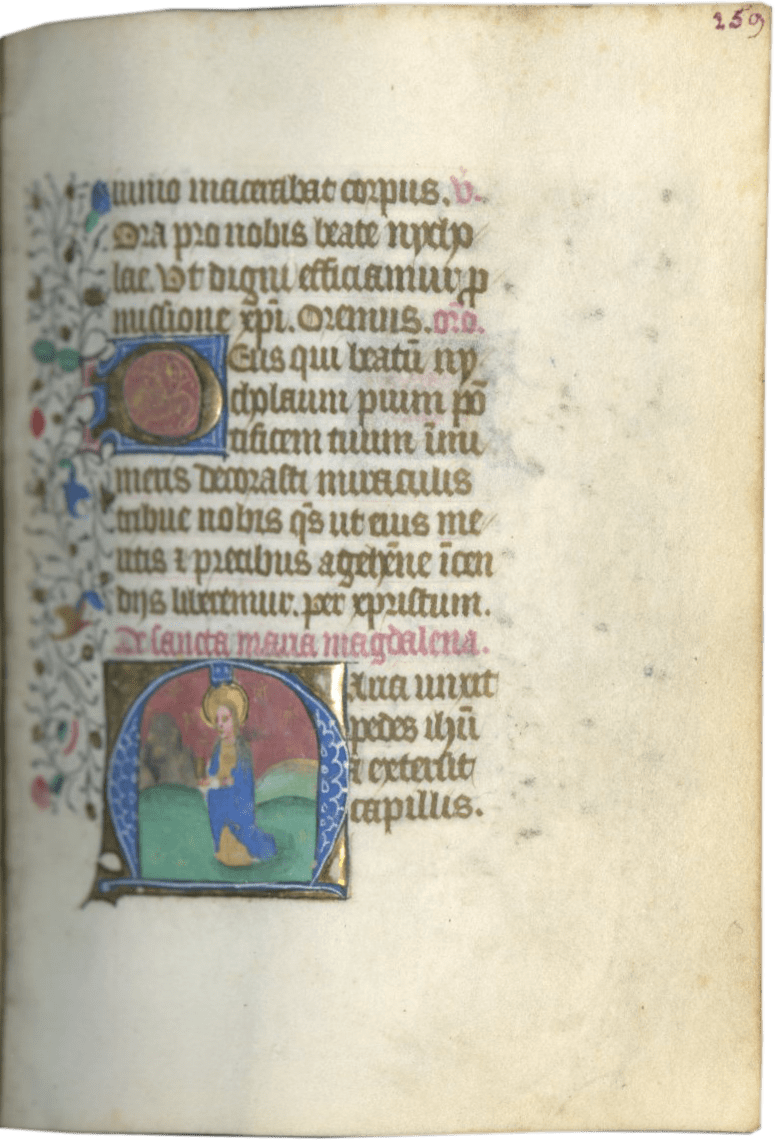 259
iunio macerabat corpus. v.
Ora pro nobis beate nycho
lae. Vt digni efficiamur p
missione xp̄i. Oremus. or̄o.
Deus qui beatū ny
cholaum pium pō
tificem tuum īnu
meris decorasti miraculis
tribue nobis q̄s ut eius me
ritis ⁊ precibus a gehēne īcen
dijs liberemur. per xpristum.
De sancta maria magdalena.
Maria unxit
pedes ihū
⁊ extersit
capillis.